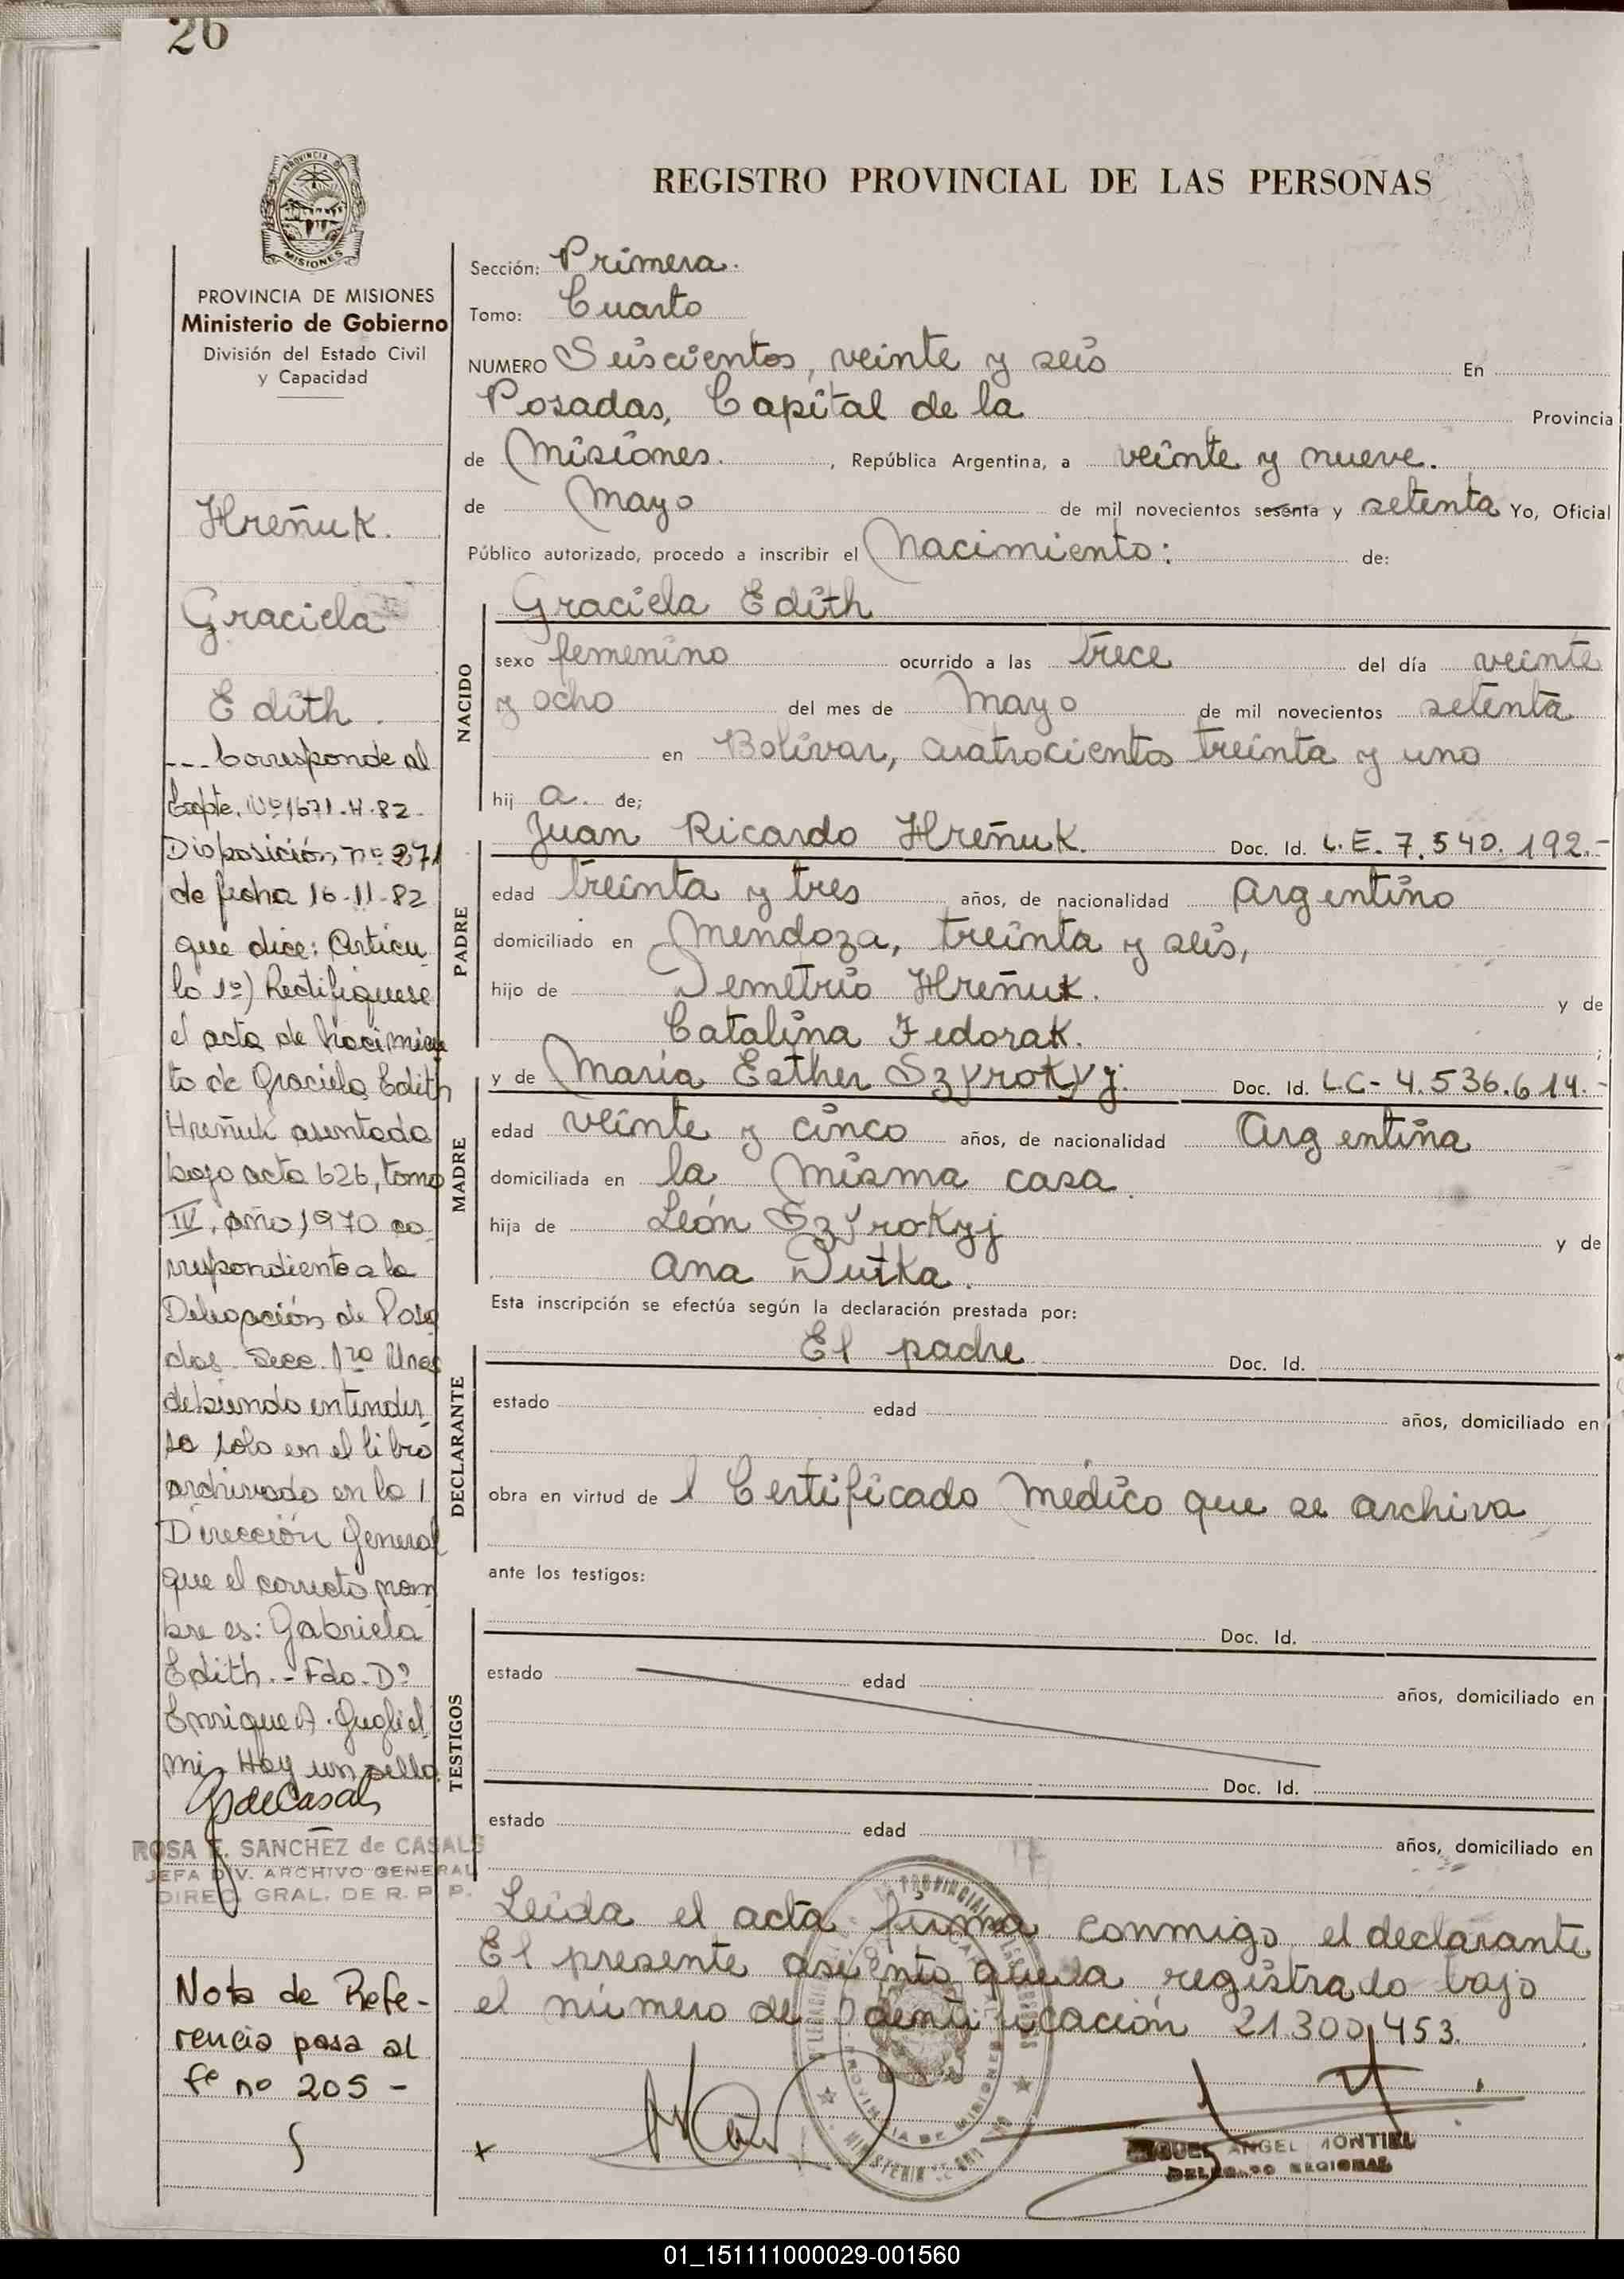 26
REGISTRO PROVINCIAL DE LAS PERSONAS
PROVINCIA DE MISIONES
Ministerio de Gobierno
División del Estado Civil
y Capacidad
Hreñuk.
Graciela
Edith.
--- Corresponde al
Expte. Nº 1671-H-82-
Disposición nº 271
de fecha 16-11-82
que dice: Articu
lo 1º) Rectifiquese
el acta de Nacimien
to de Graciela Edith
Hreñuk asentada
bajo acta 626, tomo
IV, año 1970 co
rrespondiente a la
Delegación de Posa
das Secc. 1ra
debiendo entender
se solo en el libro
archivado en la
Dirección General
que el correcto nom
bre es: Gabriela
Edith.- Fdo. Dº
Enrique A. Gugliel
mi- Hay un sello
GSdeCasals
ROSA E. SANCHEZ de CASALS
JEFA DIV. ARCHIVO GENERAL
DIREC. GRAL. DE R. P. P.
Nota de Refe-
rencia pasa al
fº nº 205 -
Sección: Primera.
Tomo: Cuarto
NUMERO Seiscientos, veinte y seis En
Posadas, Capital de la Provincia
de Misiones. , República Argentina, a veinte y nueve.
de Mayo de mil novecientos sesenta y setenta Yo, Oficial
Público autorizado, procedo a inscribir el Nacimiento: de:
NACIDO
Graciela Edith
sexo femenino ocurrido a las trece del día veinte
y ocho del mes de Mayo de mil novecientos setenta
en Bolívar, cuatrocientos treinta y uno
hij a. de;
PADRE
Juan Ricardo Hreñuk. Doc. Id. L.E. 7.540.192.-
edad treinta y tres años, de nacionalidad Argentino
domiciliado en Mendoza, treinta y seis,
hijo de Demetrio Hreñuk. y de
Catalina Fedorak. ;
MADRE
y de María Esther Szyrokyj. Doc. Id. L.C- 4.536.614.-
edad veinte y cinco años, de nacionalidad Argentina
domiciliada en la misma casa.
hija de León Szyrokyj y de
Ana Dutka.
Esta inscripción se efectúa según la declaración prestada por:
DECLARANTE
El padre Doc. Id.
estado edad años, domiciliado en
obra en virtud de l Certificado médico que se archiva
ante los testigos:
TESTIGOS
Doc. Id.
estado edad años, domiciliado en
Doc. Id.
estado edad años, domiciliado en
Leida el acta firma conmigo el declarante
El presente asiento queda registrado bajo
el número de Identificación 21.300.453.
MIGUEL ANGEL MONTIEL
DELEGADO REGIONAL
01_151111000029-001560